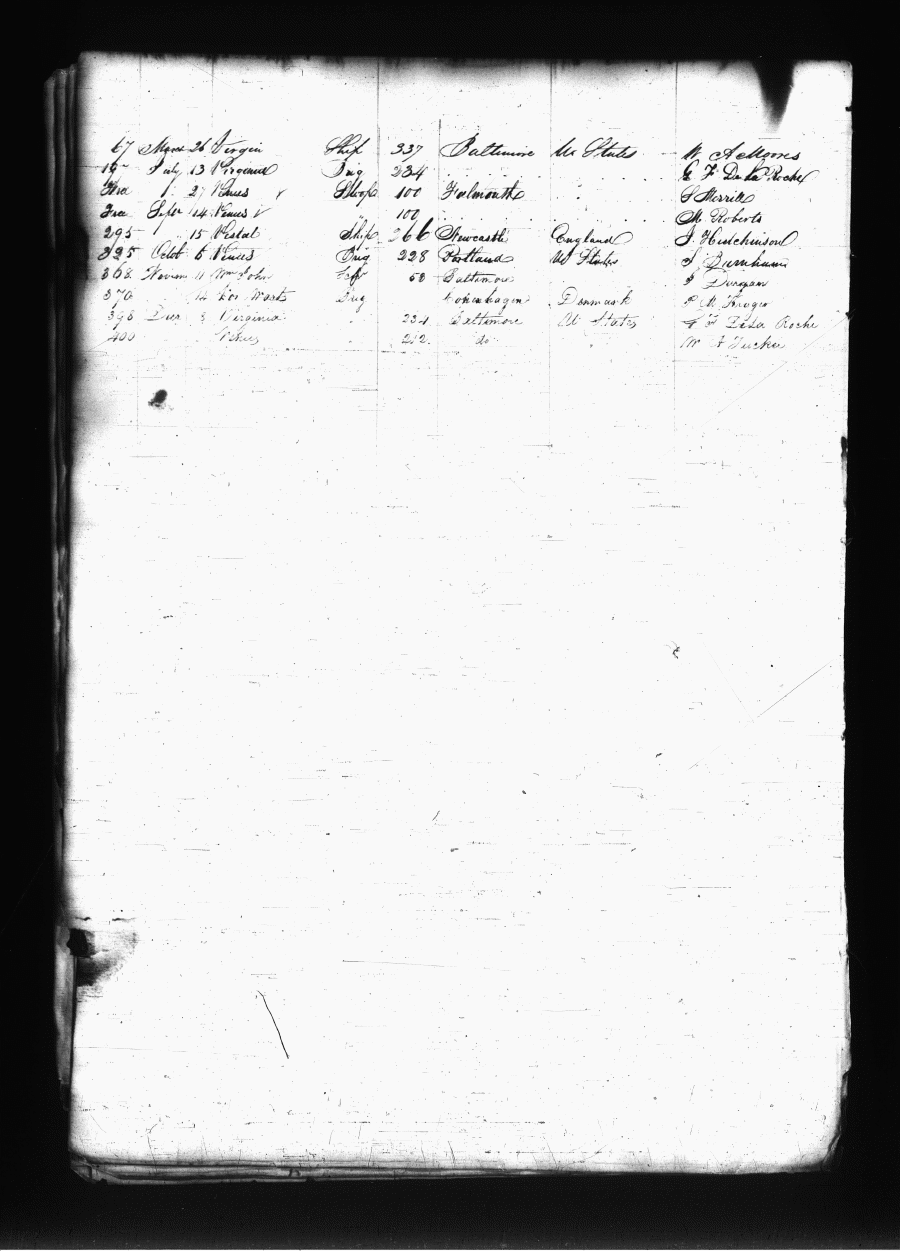 67 26 Virgin Ship 337 Baltimore U States W. A Moores
July 13 Brig 234 " " " G F De La Roche
" 27 Venus Sloop 100 Falmouth " " S Merrill
Sepr 14 Venus " 100 " " " M. Roberts
295 " 15 Vestal Ship 266 Newcastle England J. Hutchinson
325 Octob 6 Venus Brig 228 Portland U States J Burnham
368 Novem 11 Wm & John 58 Baltimore " J Durgan
370 " 14 Brig Copenhagen Denmark P M Kruger
395 Decr 3 Virginia " 234 Baltimore U States G F De La Roche
400 Venus " 212 do " W A Tucker